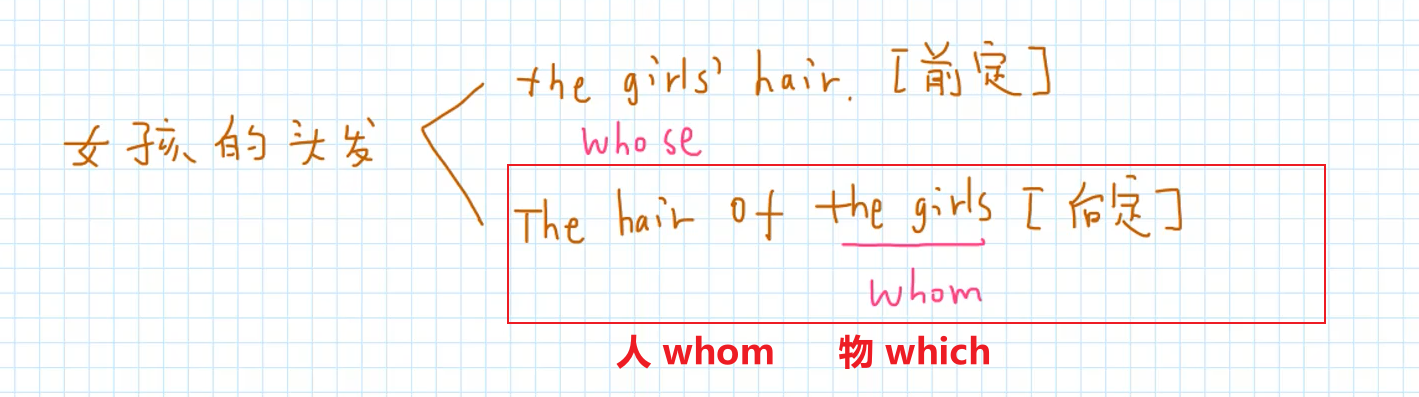 the girls' hair. [前定]
女孩的头发
whose
The hair of the girls [后定]
whom
人 whom 物 which